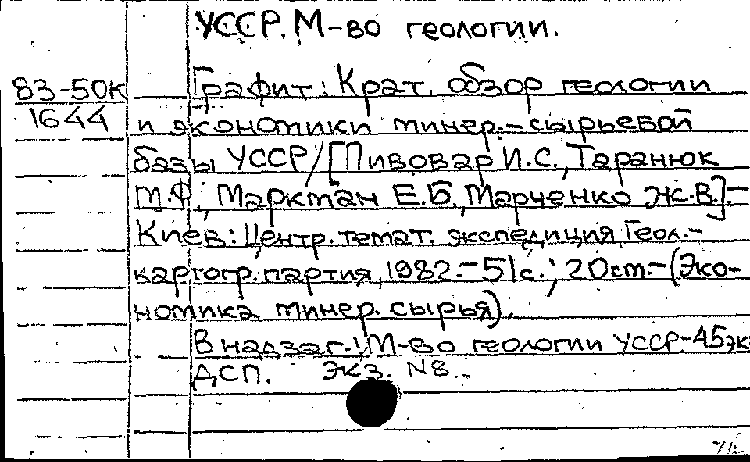 УССР. М-во геологии.
83-50К Графит: Крат. обзор геологии
1644 и экономики минер.-сырьевой
базы УССР/[Пивовар И.С., Таранюк
М.Ф., Марктан Е.Б., Марченко Ж.В.].-
Киев: Центр. темат. экспедиция, Геол.-
картогр. партия, 1982.-51с.; 20см.-(Эко-
номика минер. сырья).
В надзаг.: М-во геологии УССР.-45эк
ДСП. Экз. №8.